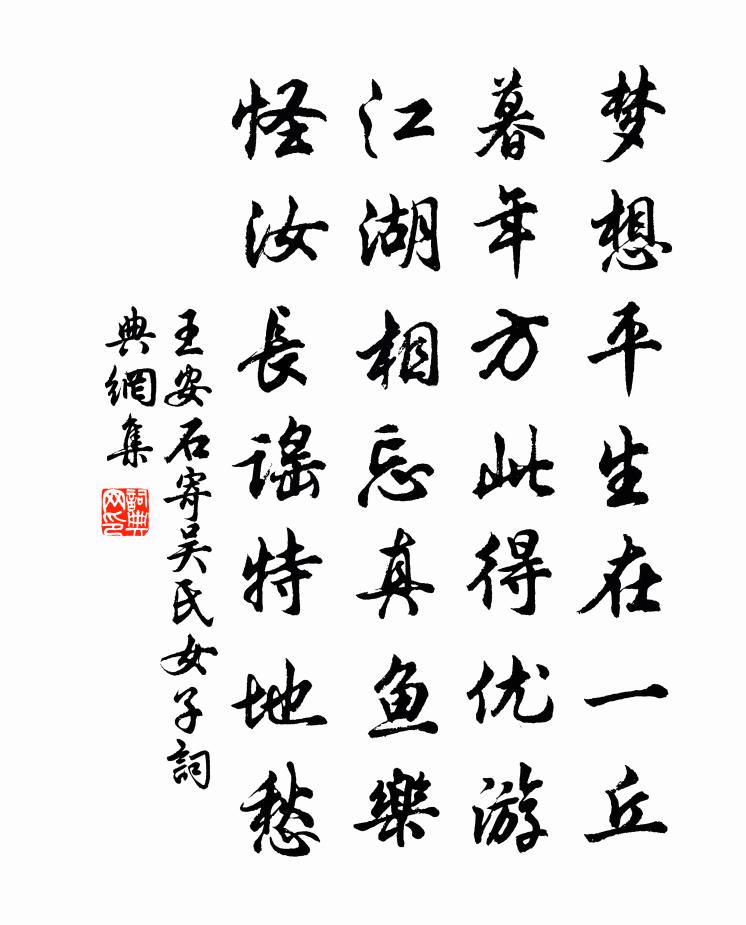 梦想平生在一丘
暮年方此得优游
江湖相忘真鱼樂
怪汝長谣特地愁
王安石寄吴氏女子詞
典網集
詞典网印